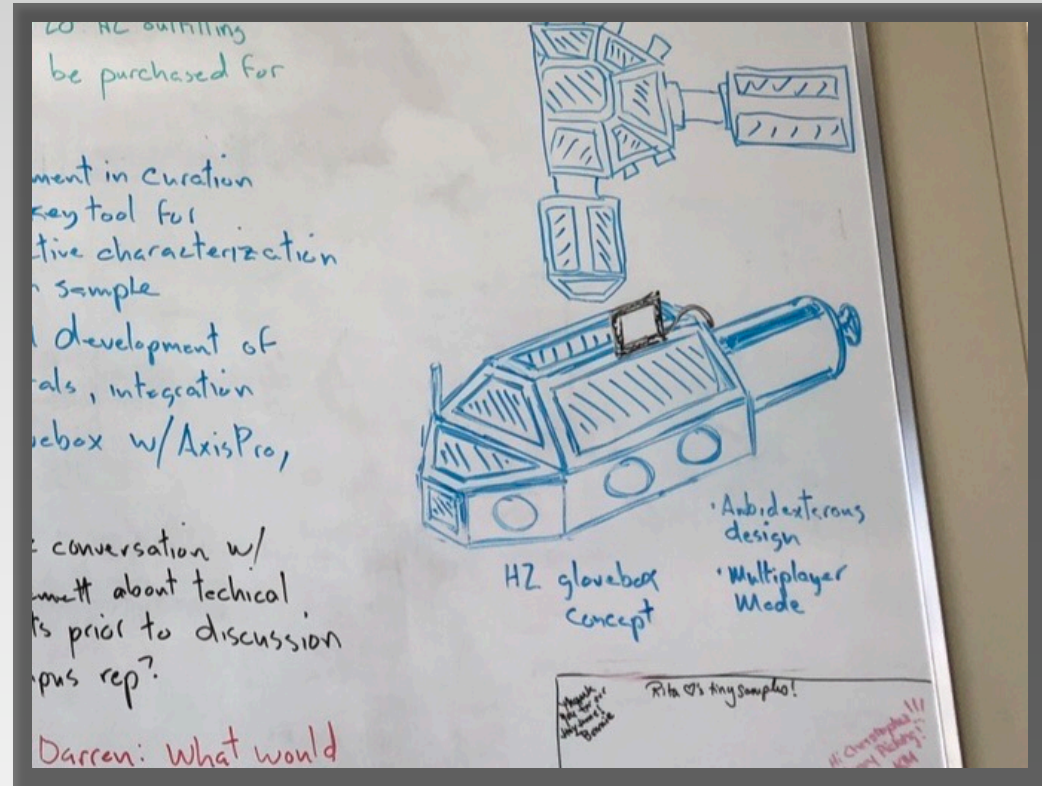 be purchased for
ment in Curation
key tool for
tive characterization
sample
development of
als, integration
ebox w/AxisPro,
conversation w/
about techical
ts prior to discussion
pus rep?
Darren: What would
HZ glovebox
Concept
· Anbidexterous
design
· Multiplayer
Mode
Rita ♡'s tiny samples!
Bonnie